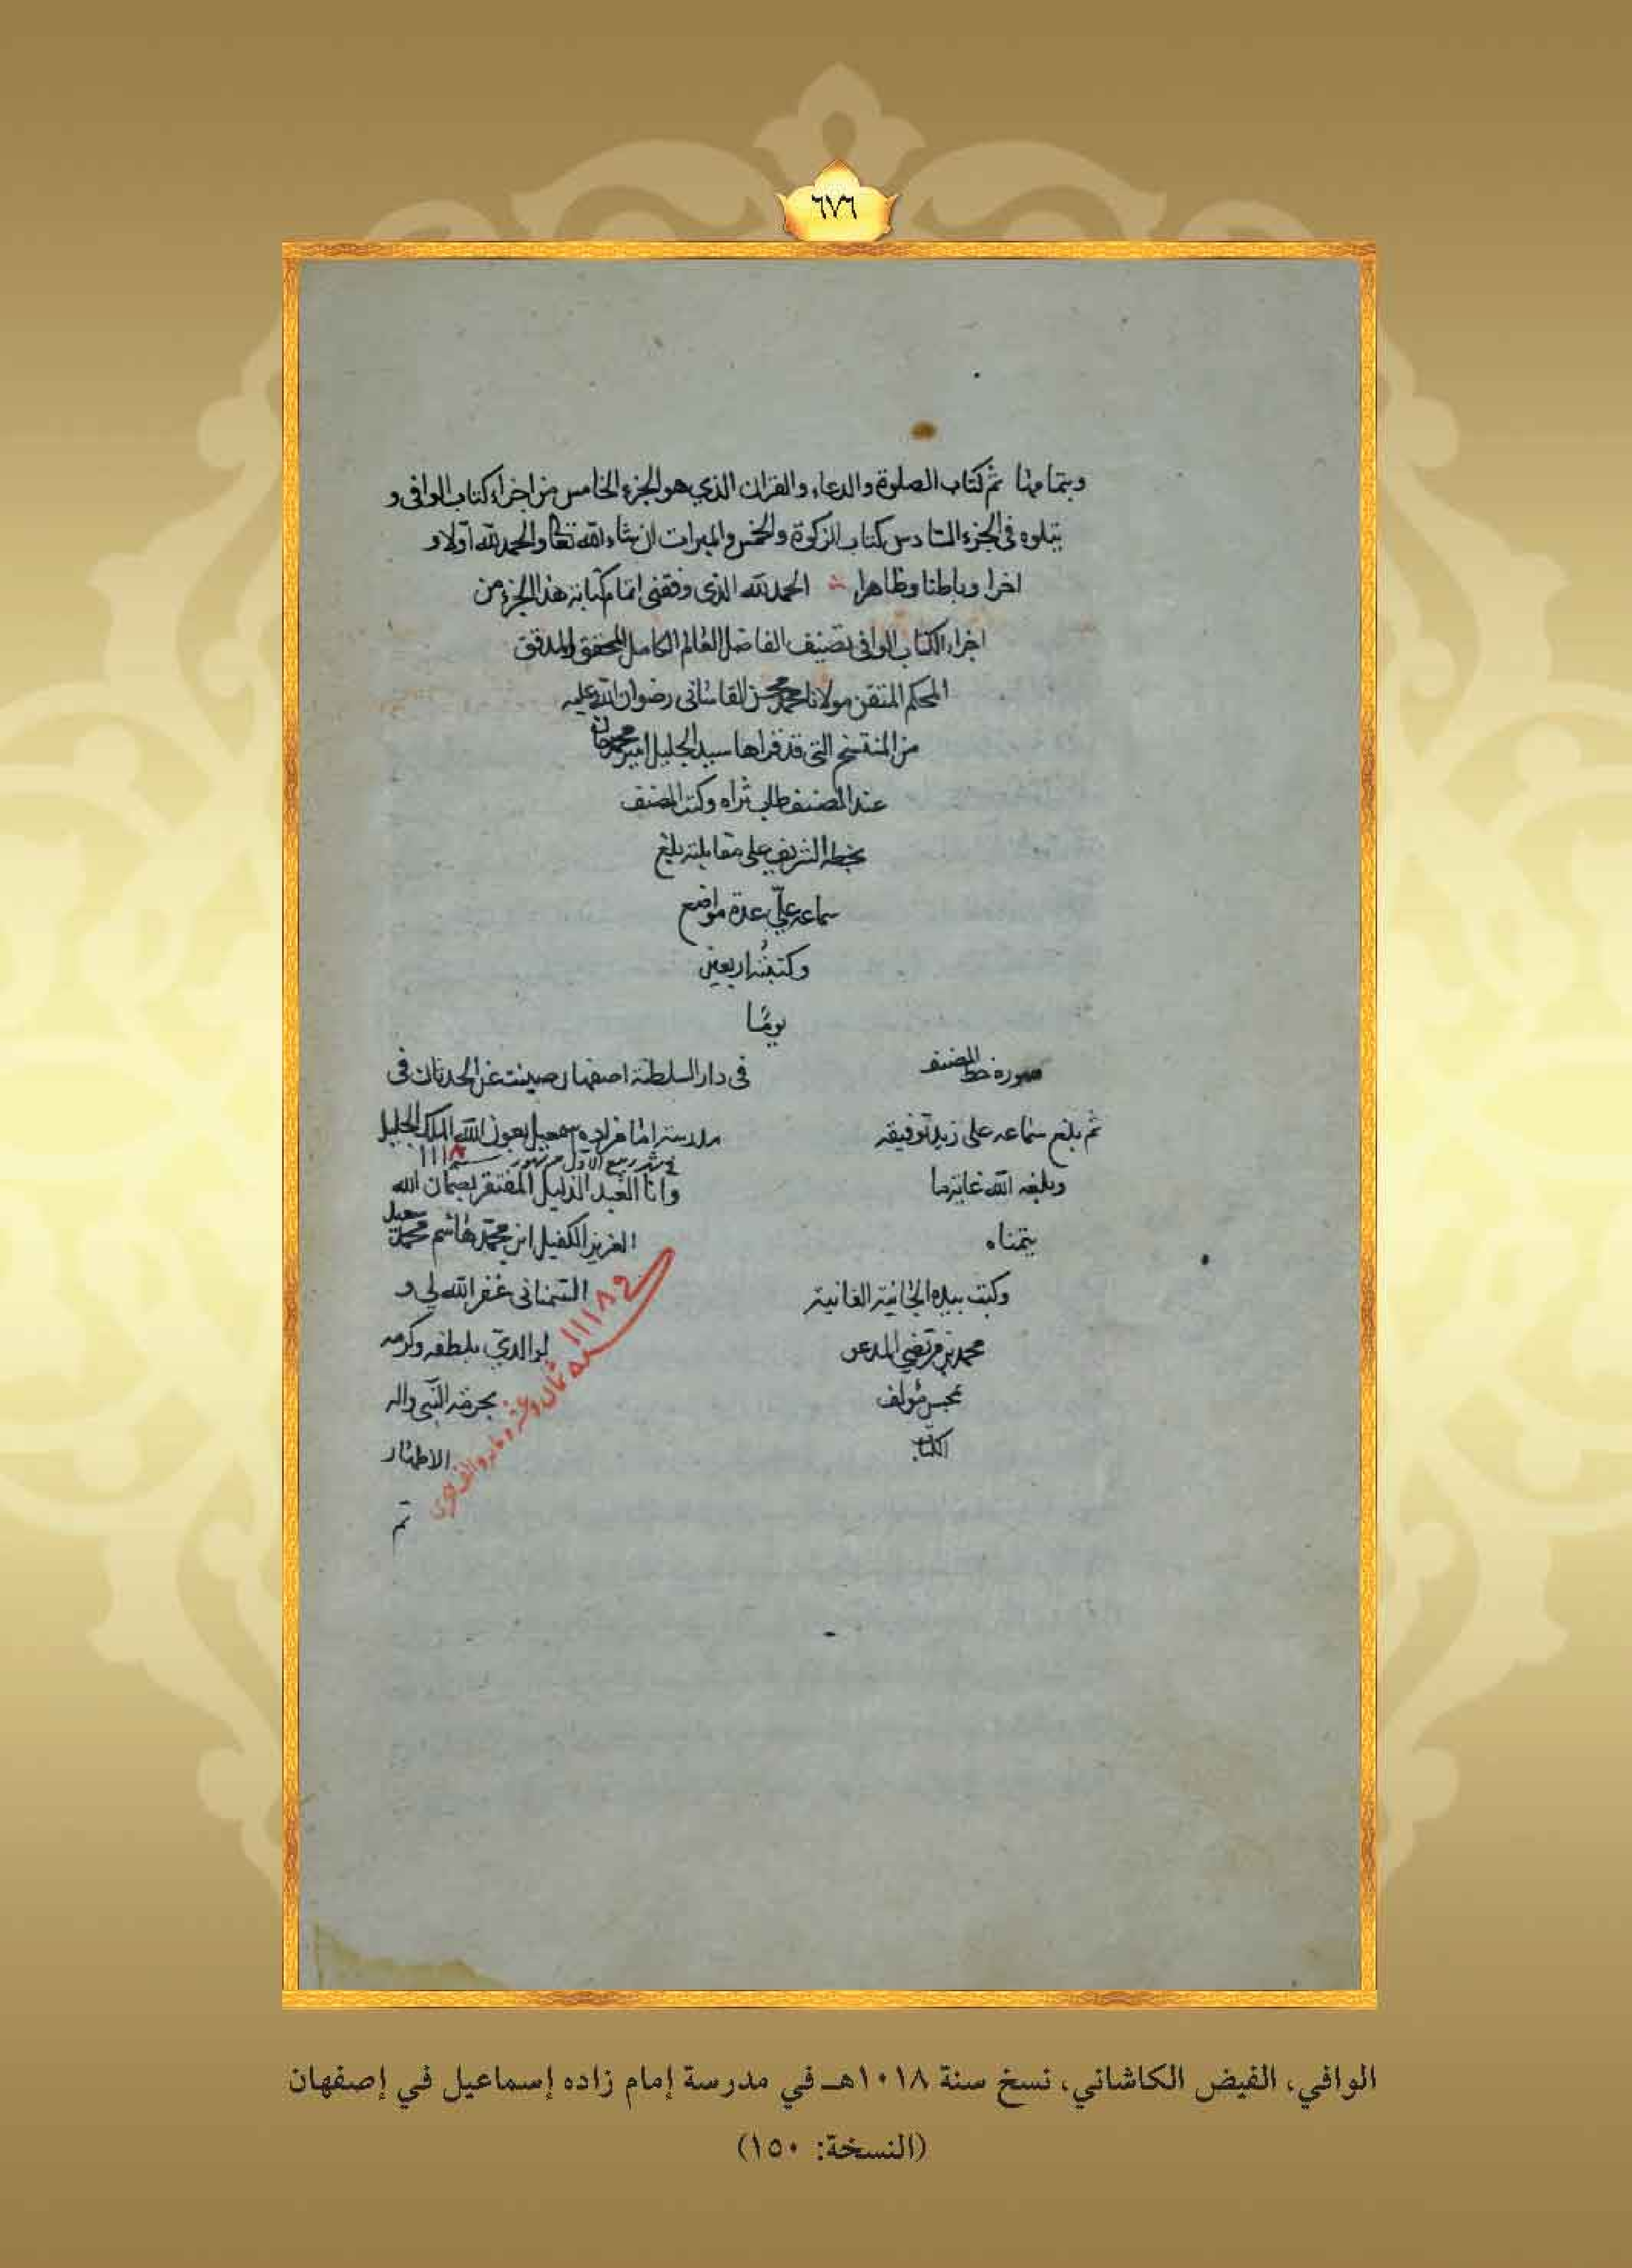 ٦٧٦
وبتمامها تم كتاب الصلوة والدعاء والقران الذي هو الجزء الخامس من اجزاء كتاب الوافي و
يتلوه في الجزء السادس كتاب الزكوة والخمس والمبرات ان شاء الله تعالى والحمد لله اولا و
اخرا وباطنا وظاهرا الحمد لله الذي وفقني اتمام كتابة هذا الجزء من
اجزاء الكتاب الوافي تصنيف الفاضل العالم الكامل المحقق المدقق
المحكم المتقن مولانا محمد محسن القاساني رضوان الله عليه
من النسخ التي قد قراها سيد الجليل امير محمد خان
عند المصنف طاب ثراه وكتب المصنف
بخطه الشريف على مقابلته بلغ
سماعه علي عدة مواضع
وكتبته اربعين
يوما
صورة خط المصنف
ثم بلغ سماعه علي زيد توفيقه
وبلغه الله غاية ما
يتمناه
وكتب بيده الجانية الفانية
محمد بن مرتضى المدعو
بمحسن مؤلف
الكتاب
في دار السلطنة اصفهان صينت عن الحدثان في
مدرسة امام زاده اسمعيل بعون الله الملك الجليل
في شهر ربيع الاول من شهور سنة ١١١٨
وانا العبد الذليل المفتقر بضمان الله
العزيز الكفيل ابن محمد هاشم محمد سعيد
السمناني غفر الله لي و
لوالدي بلطفه وكرمه
بحرمة النبي واله
الاطهار
تم
١١١٨
سنه ثمان وعشر ومايه والف هجري
الوافي، الفيض الكاشاني، نسخ سنة ١٠١٨هـ في مدرسة إمام زاده إسماعيل في إصفهان
(النسخة: ١٥٠)